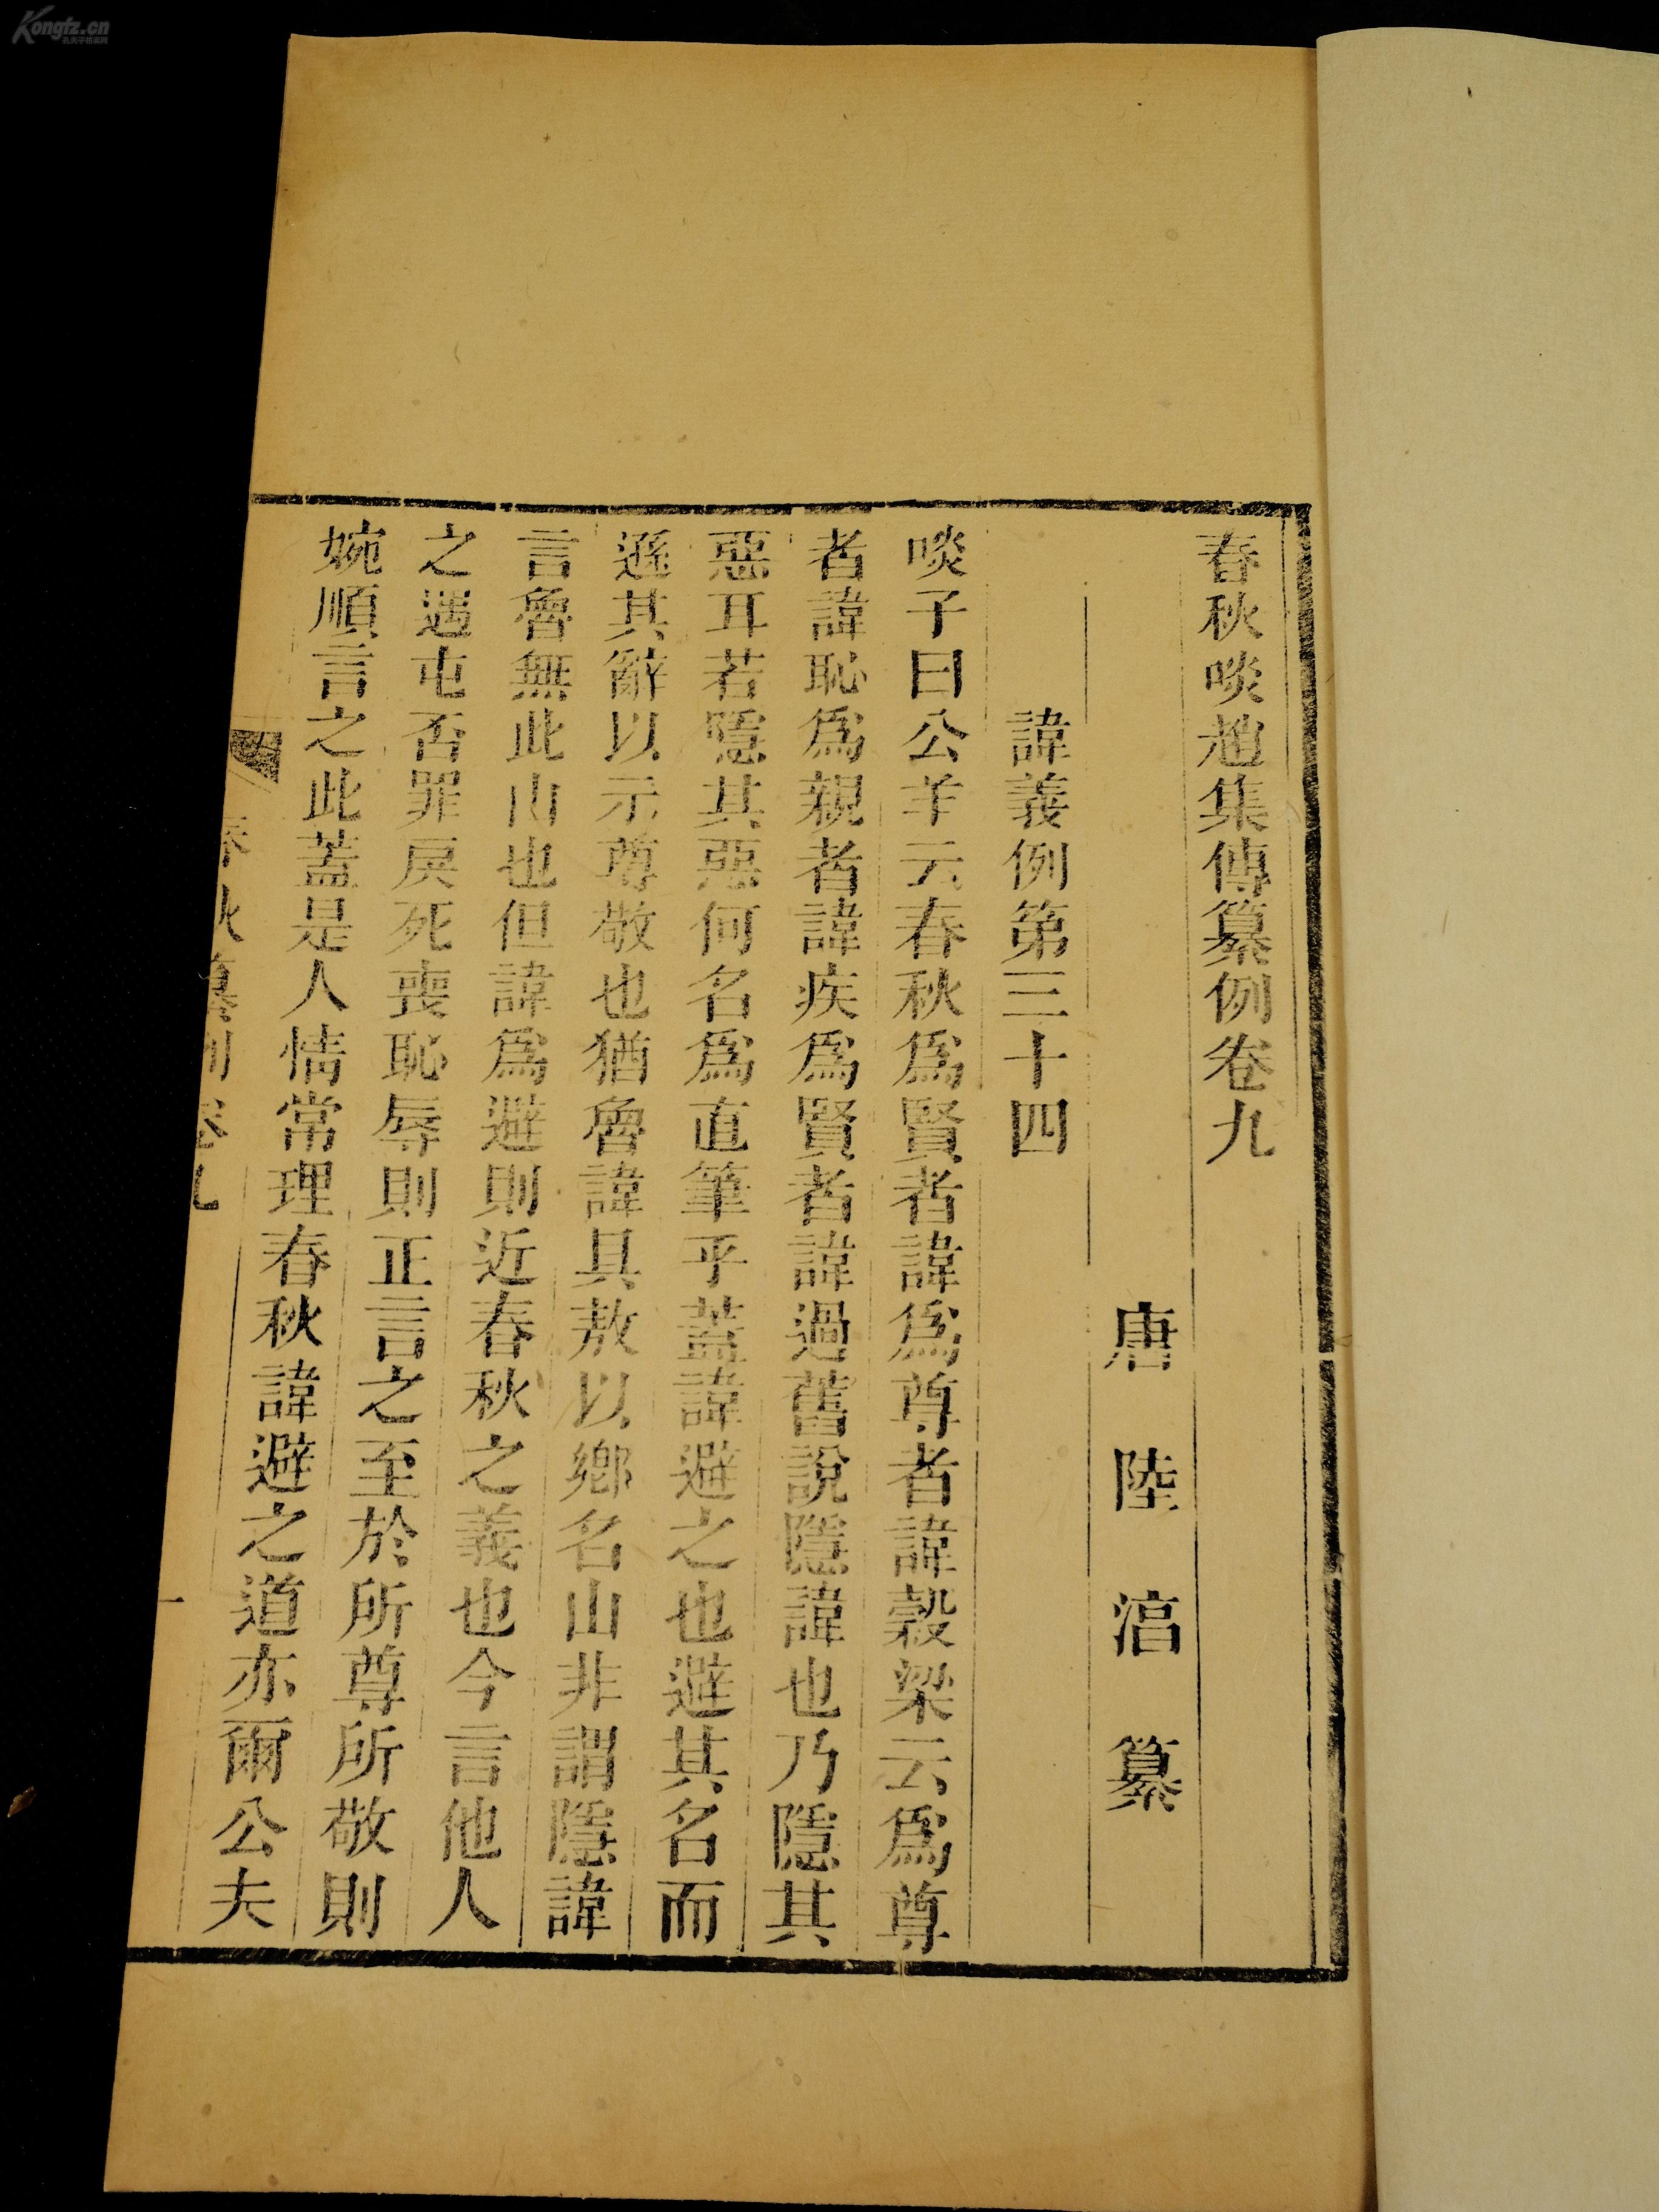 春秋啖趙集傳纂例卷九
唐陸淳纂
諱義例第三十四
啖子曰公羊云春秋爲賢者諱爲尊者諱穀梁云爲尊
者諱恥爲親者諱疾爲賢者諱過舊說隱諱也乃隱其
惡耳若隱其惡何名爲直筆乎蓋諱避之也避其名而
遜其辭以示尊敬也猶魯諱具敖以鄉名山非謂隱諱
言魯無此山也但諱爲避則近春秋之義也今言他人
之遇屯否罪戾死喪恥辱則正言之至於所尊所敬則
婉順言之此蓋是人情常理春秋諱避之道亦爾公夫
春秋纂例卷九
一
Kongfz.cn